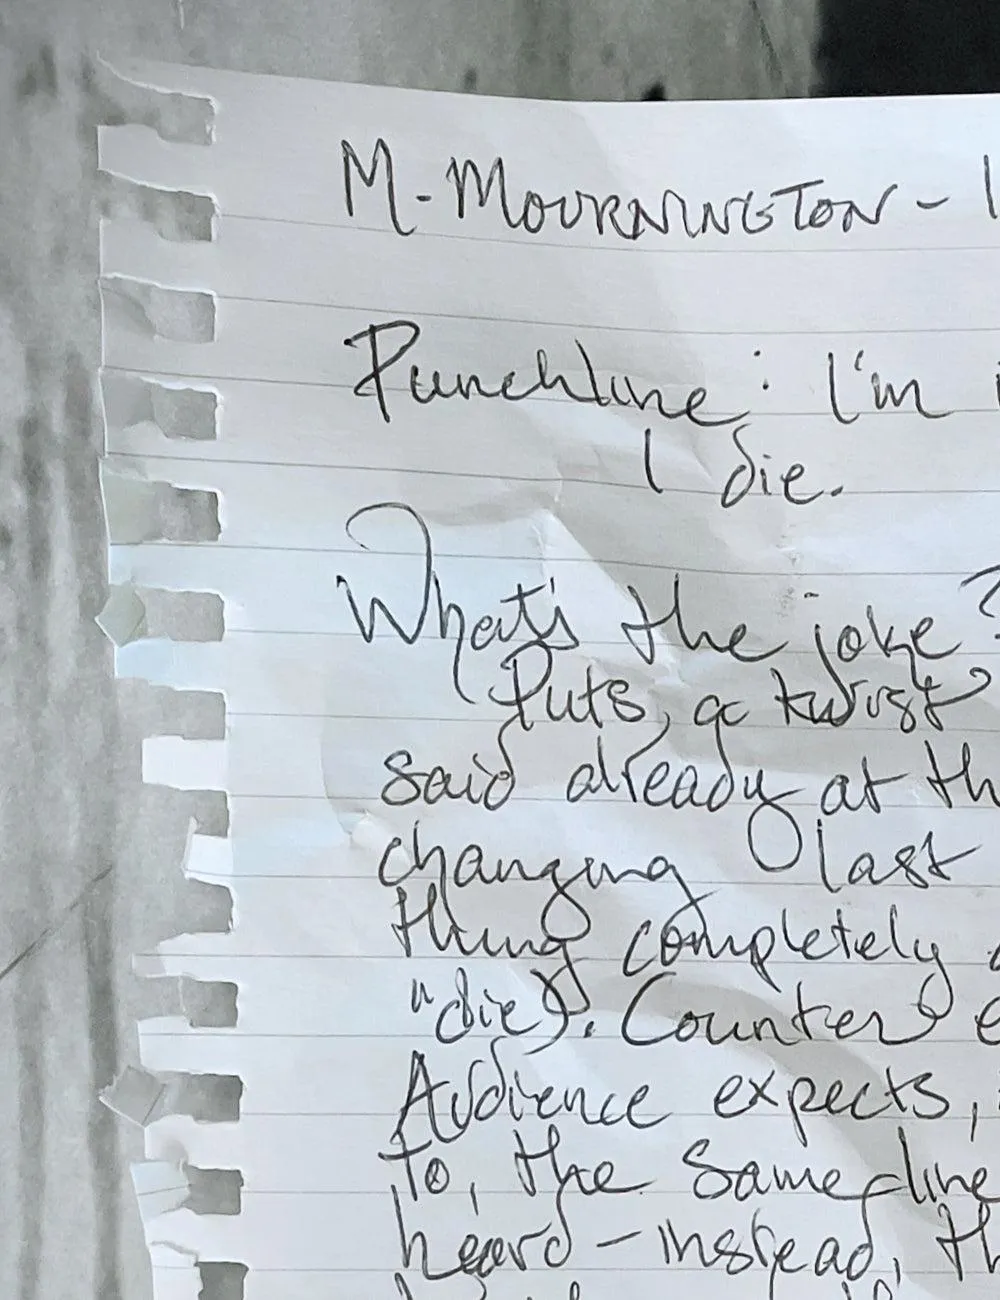 M. MOURNINGTON -
Punchline: I'm
I die.
What's the joke?
Puts a twist
said already at th
changing last
thing completely
"die"). Counter e
Audience expects,
to, the same line
heard - instead, th